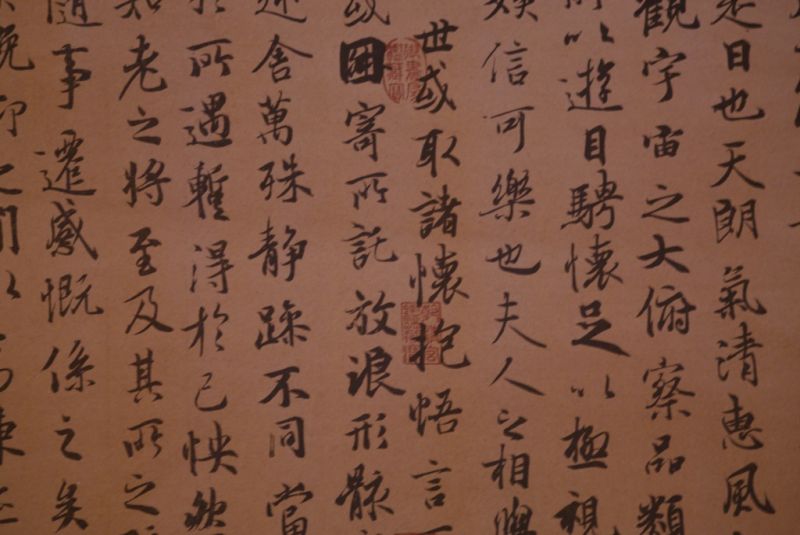 是日也天朗氣清惠風
觀宇宙之大俯察品類
所以遊目騁懷足以極視
娛信可樂也夫人之相與
世或取諸懷抱悟言
或因寄所託放浪形骸
舍萬殊靜躁不同當
所遇暫得於己快然
知老之將至及其所之
隨事遷感慨係之矣